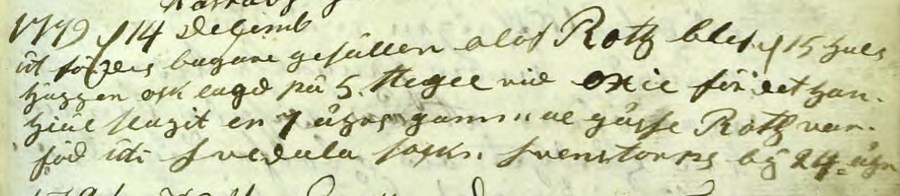 1779 d 14 Desemb
ut fördes bagare gesällen Olof Roth blef d 15 hals
huggen ock lagd på 5 stegel vid Oxie för det han
hiäl slagit en 7 åhrs gammal gåsse Roth var
föd uti Svedala sokn Svenstorps by 24 åhr